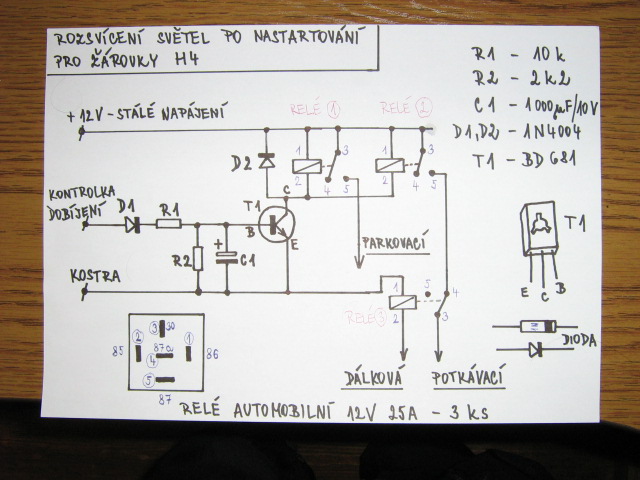 ROZSVÍCENÍ SVĚTEL PO NASTARTOVÁNÍ
PRO ŽÁROVKY H4
R1 - 10k
R2 - 2k2
C1 - 1000µF/10V
D1,D2 - 1N4004
T1 - BD681
+12V - STÁLÉ NAPÁJENÍ
RELÉ 1
RELÉ 2
D2
1
2
3
4
5
1
2
3
4
5
KONTROLKA
DOBÍJENÍ
D1
R1
T1
C
B
E
R2
+
C1
PARKOVACÍ
T1
E
C
B
KOSTRA
RELÉ 3
1
2
5
4
3
3
30
2
85
87a
4
1
86
5
87
DIODA
DÁLKOVÁ
POTKÁVACÍ
RELÉ AUTOMOBILNÍ 12V 25A - 3 KS